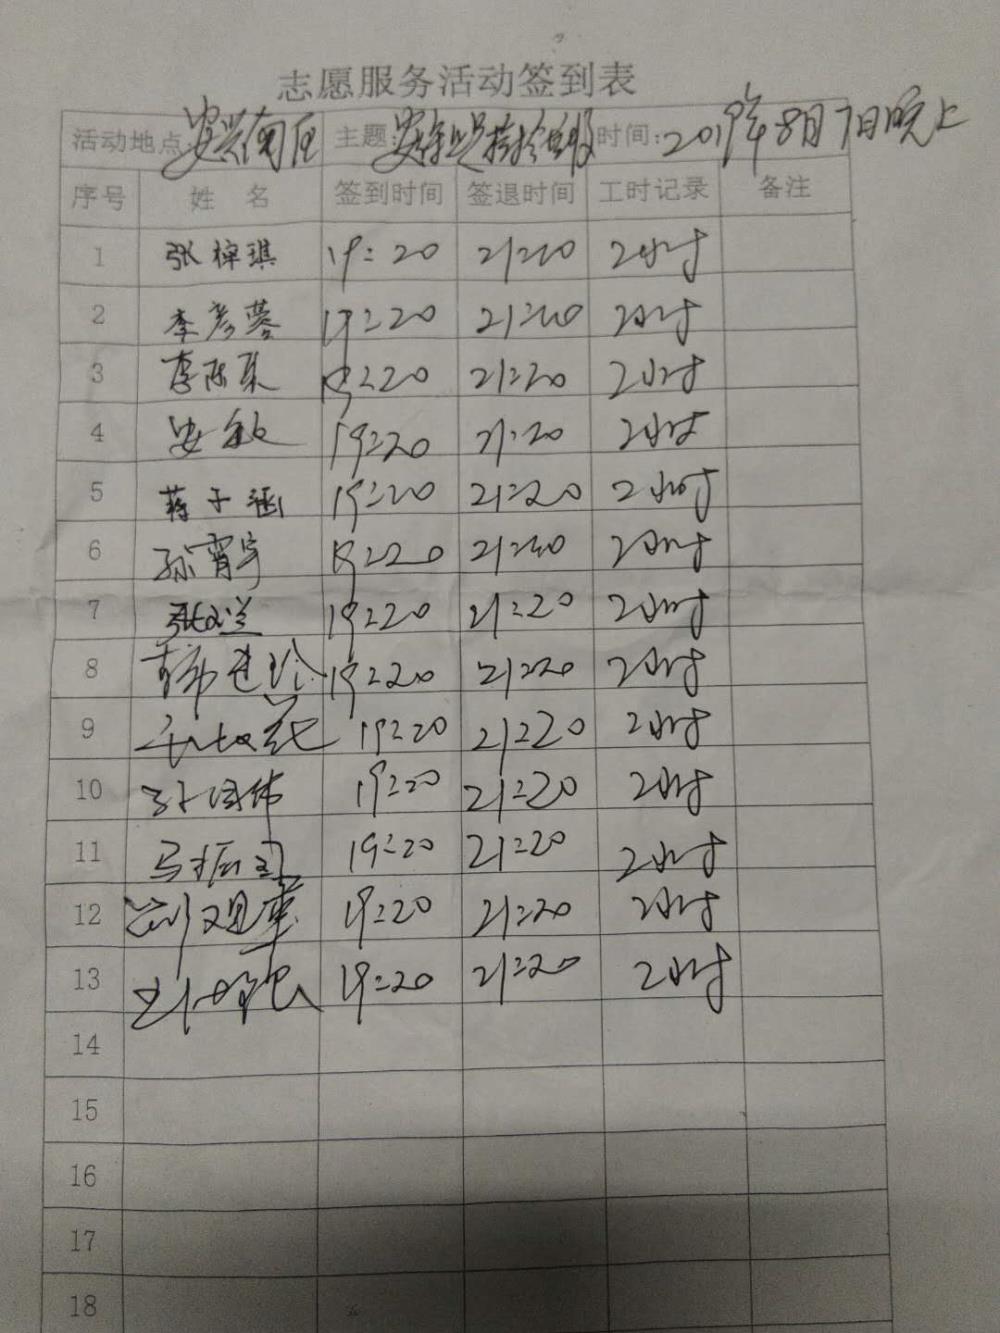 志愿服务活动签到表
活动地点: 安兴南区 主题: 时间: 2019年8月7日晚上
序号 姓名 签到时间 签退时间 工时记录 备注
1 张梓琪 19:20 21:20 2小时
2 李彦蓉 19:20 21:20 2小时
3 李 19:20 21:20 2小时
4 安敏 19:20 21:20 2小时
5 蒋子涵 19:20 21:20 2小时
6 孙霄宇 19:20 21:20 2小时
7 张 19:20 21:20 2小时
8 19:20 21:20 2小时
9 19:20 21:20 2小时
10 孙国伟 19:20 21:20 2小时
11 马 19:20 21:20 2小时
12 刘 19:20 21:20 2小时
13 19:20 21:20 2小时
14
15
16
17
18